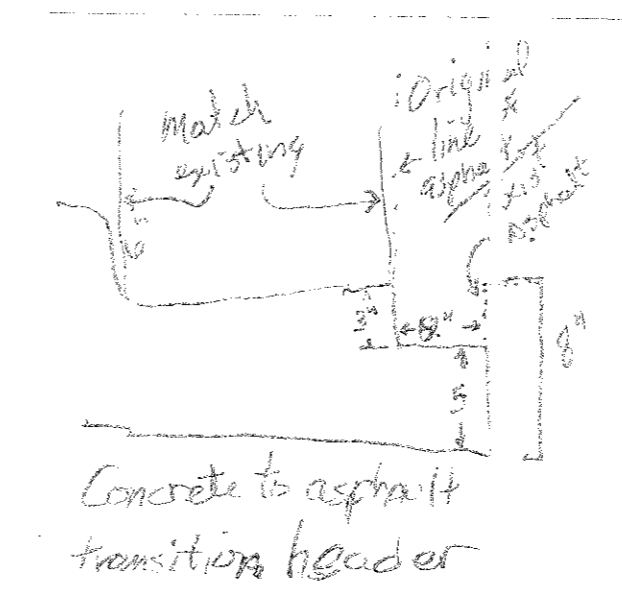 Match
existing
Original
line
aspha
Asphalt
6"
8"
8"
Concrete to asphalt
transition header